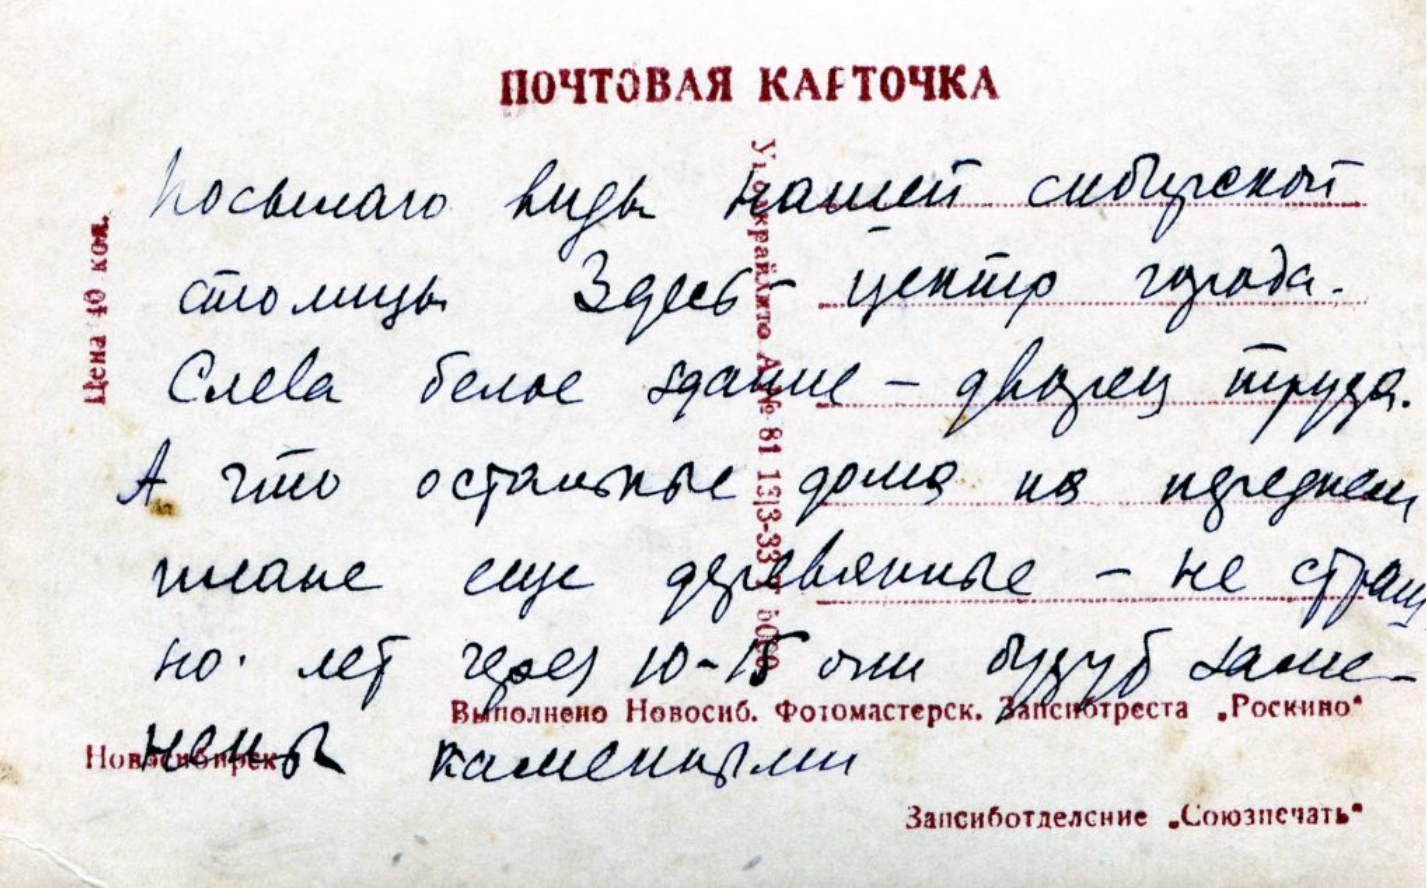 ПОЧТОВАЯ КАРТОЧКА
Посылаю виды нашей сибирской
столицы Здесь - центр города.
Слева белое здание - дворец труда.
А что остальные дома на переднем
плане еще деревянные - не страш
но. лет через 10-15 они будут заме-
нены каменными
Цена 40 коп.
Выполнено Новосиб. Фотомастерск. Запсибтреста „Роскино“
Новосибирск
Запсиботделение „Союзпечать“